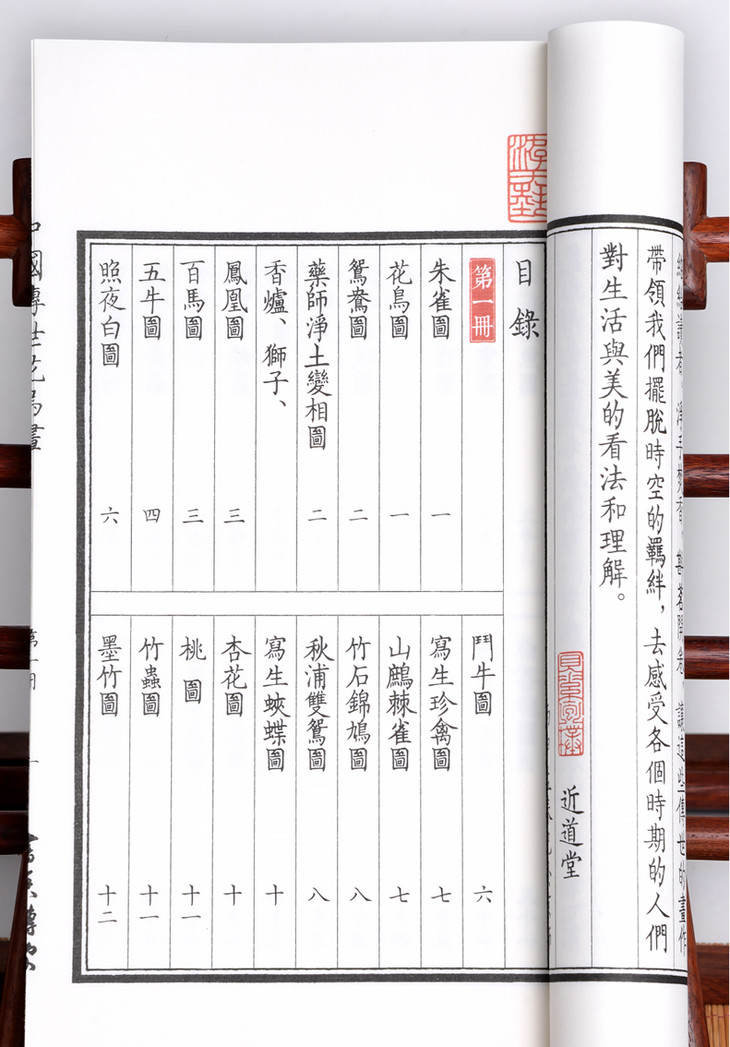 帶領我們擺脫時空的羈絆，去感受各個時期的人們
對生活與美的看法和理解。
近道堂
目錄
第一冊
朱雀圖 一
花鳥圖 一
鴛鴦圖 二
藥師淨土變相圖 二
香爐、獅子、
鳳凰圖 三
百馬圖 三
五牛圖 四
照夜白圖 六
鬥牛圖 六
寫生珍禽圖 七
山鷓棘雀圖 七
竹石錦鳩圖 八
秋浦雙鴛圖 八
寫生蛺蝶圖 十
杏花圖 十
桃圖 十一
竹蟲圖 十一
墨竹圖 十二